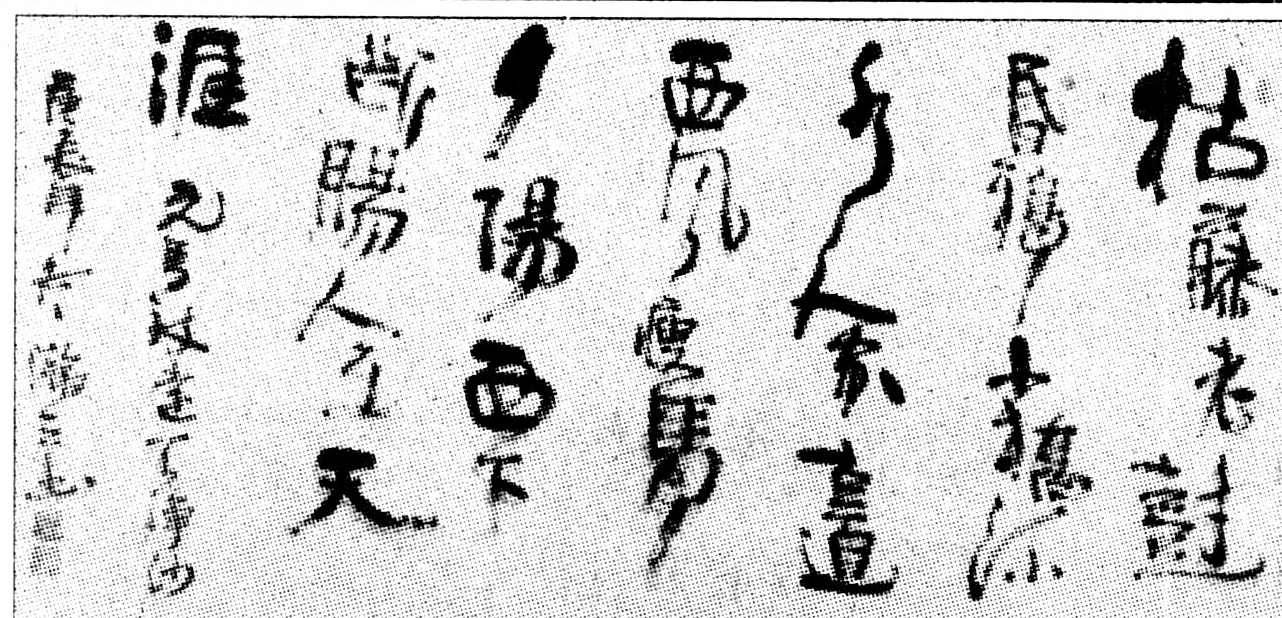 枯藤老樹
昏鴉小橋流
水人家古道
西風瘦馬
夕陽西下
斷腸人在天
涯 元馬致遠